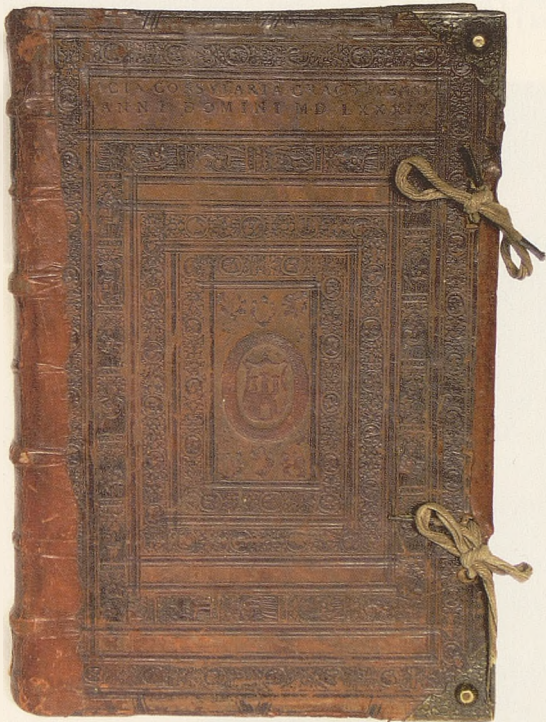 ACTA CONSVLARIA CRACOVIENSIA
ANNI DOMINI MD LXXXIX